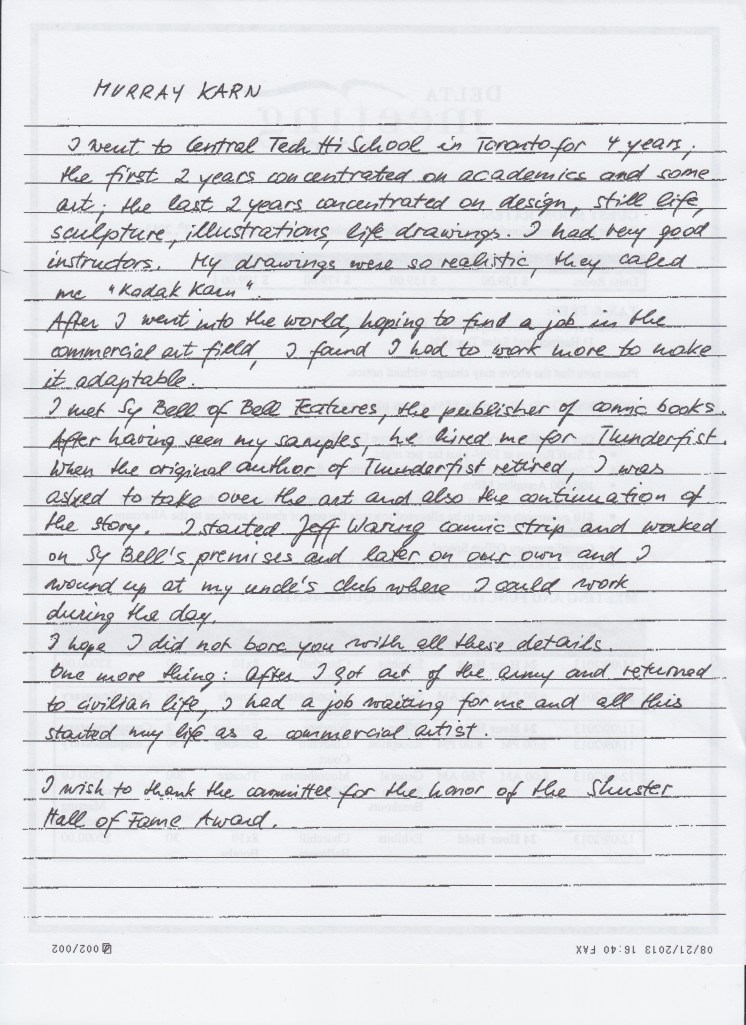 MURRAY KARN
I went to Central Tech Hi School in Toronto for 4 years;
the first 2 years concentrated on academics and some
art; the last 2 years concentrated on design, still life,
sculpture, illustrations, life drawings. I had very good
instructors. My drawings were so realistic, they called
me "Kodak Karn".
After I went into the world, hoping to find a job in the
commercial art field, I found I had to work more to make
it adaptable.
I met Sy Bell of Bell Features, the publisher of comic books.
After having seen my samples, he hired me for Thunderfist.
When the original author of Thunderfist retired, I was
asked to take over the art and also the continuation of
the story. I started Jeff Waring comic strip and worked
on Sy Bell's premises and later on our own and I
wound up at my uncle's club where I could work
during the day.
I hope I did not bore you with all these details.
One more thing: After I got out of the army and returned
to civilian life, I had a job waiting for me and all this
started my life as a commercial artist.
I wish to thank the committee for the honor of the Shuster
Hall of Fame Award.
08/21/2013 16:40 FAX
002/002